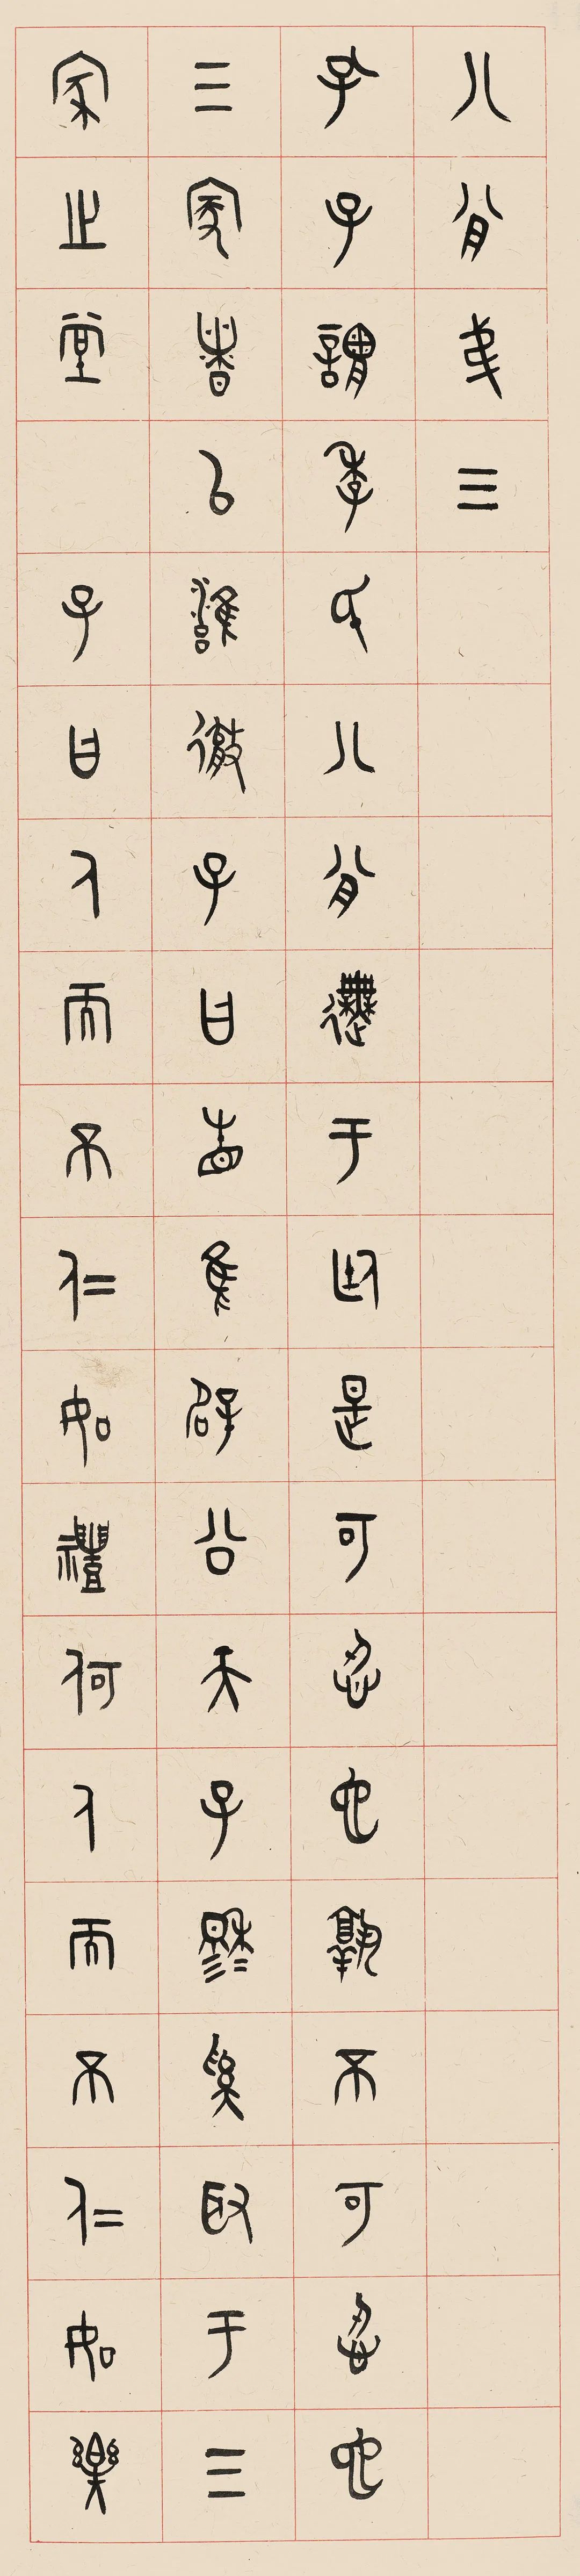 八佾弟三
孔子謂季氏八佾舞于廷是可忍也孰不可忍也
三家者以雍徹子曰相維辟公天子穆穆奚取于三
家之堂 子曰人而不仁如禮何人而不仁如樂